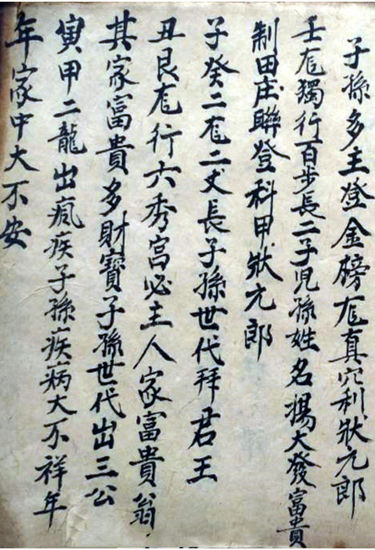 子孫多主登金磅尨真穴利狀元郎
壬尨獨行百步長二子児孫姓名揚大發富貴
制田庄聯登科甲狀元郎
子癸二尨二丈長子孫世代拜君王
丑艮尨行六秀宮必主人家富貴翁
其家富貴多財寶子孫世代出三公
寅甲二龍出瘋疾子孫疾病大不祥年
年家中大不安